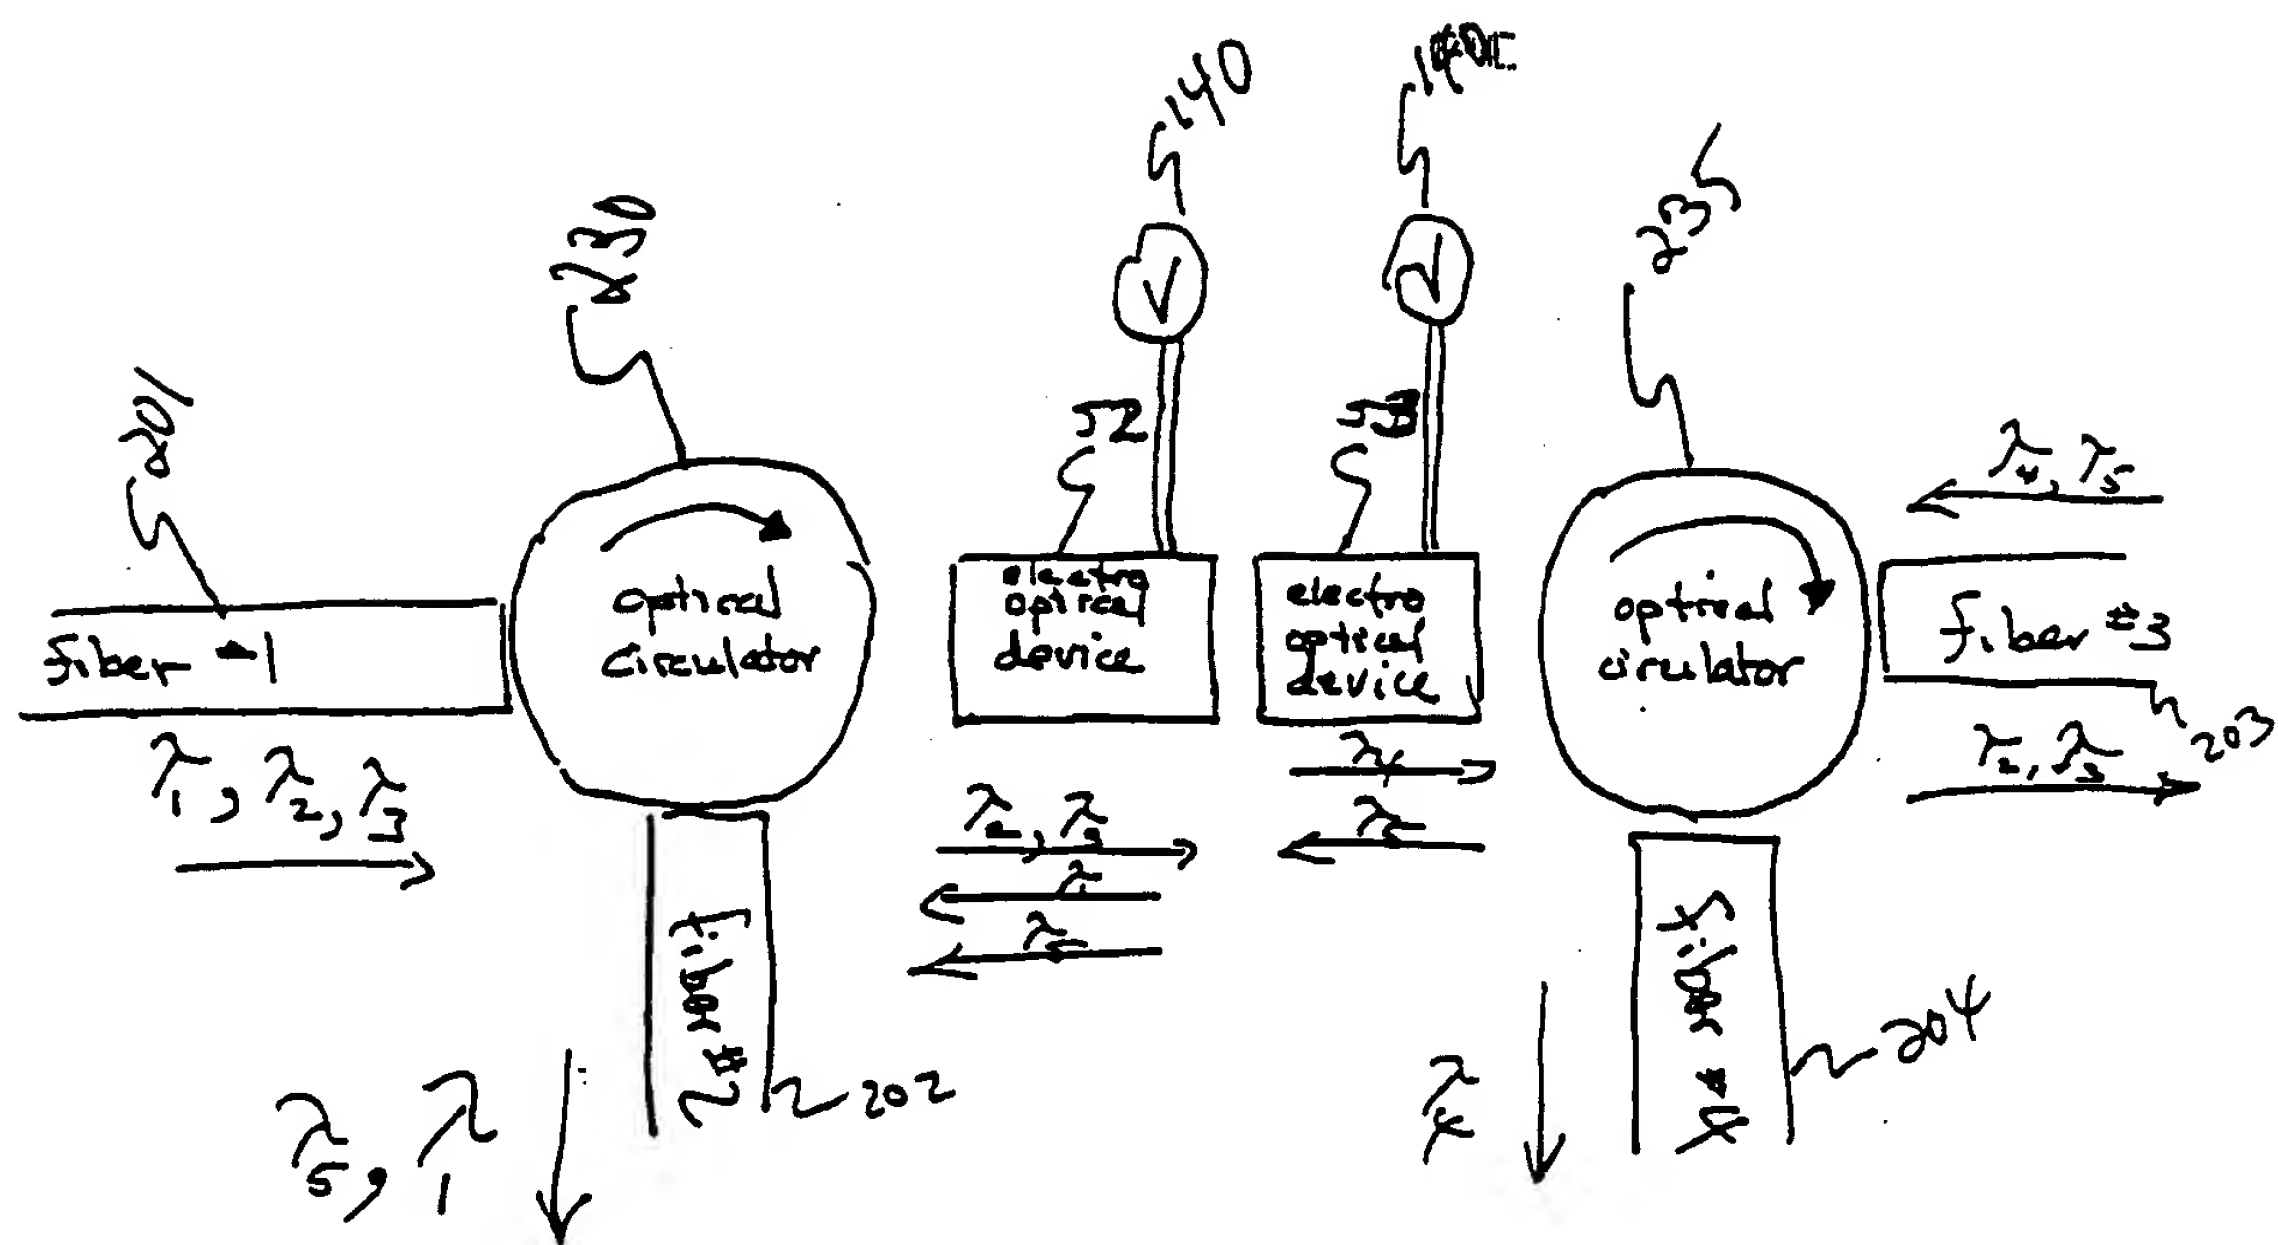 140
230
235
201
V
V
52
λ4, λ5
optical
circulator
electro
optical
device
electro
optical
device
optical
cirulator
fiber #1
fiber #3
203
λ1, λ2, λ3
λ4
λ2, λ3
λ2, λ3
λ5
λ1
λ5
fiber #2
202
fiber #4
204
λ5, λ1
λ4